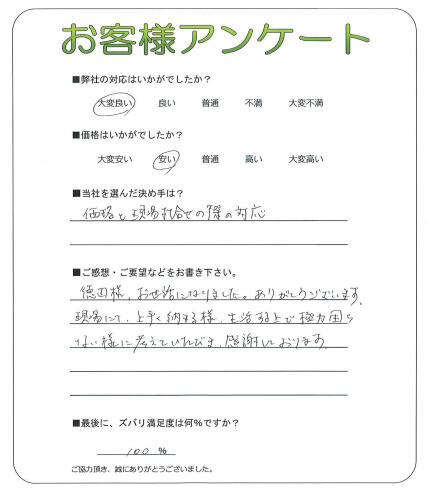 お客様アンケート
■弊社の対応はいかがでしたか？
大変良い 良い 普通 不満 大変不満
■価格はいかがでしたか？
大変安い 安い 普通 高い 大変高い
■当社を選んだ決め手は？
価格と現場打合せの際の対応
■ご感想・ご要望などをお書き下さい。
徳田様、お世話になりました。ありがとうございます。
現場にて、上手く納まる様、生活する上で極力困ら
ない様に考えていただき、感謝しております。
■最後に、ズバリ満足度は何％ですか？
100 ％
ご協力頂き、誠にありがとうございました。